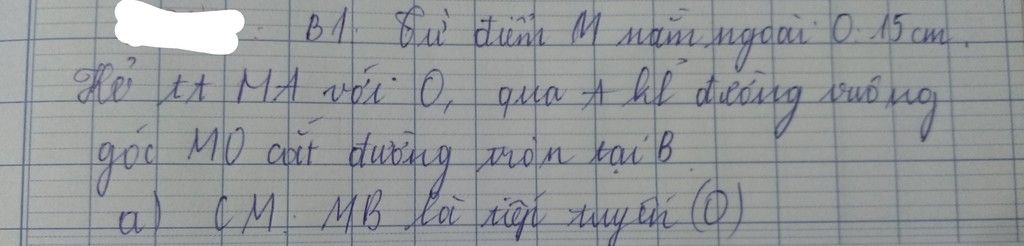 B1. Từ điểm M nằm ngoài O. 15cm.
Kẻ tt MA với O, qua A kẻ đường vuông
góc MO cắt đường tròn tại B
a) CM: MB là tiếp tuyến (O)